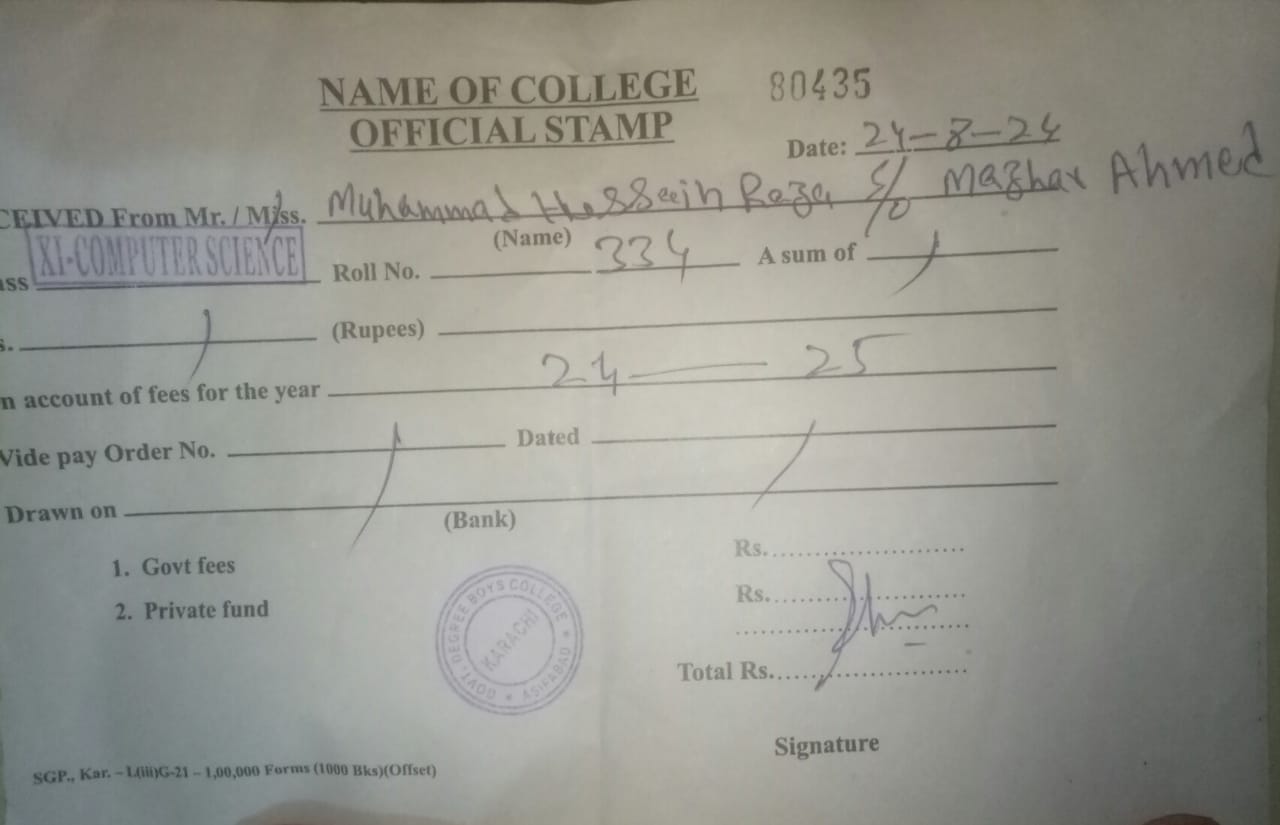 NAME OF COLLEGE 80435
OFFICIAL STAMP
Date: 24-8-24
CEIVED From Mr. / Miss. Muhammad Hussein Raza S/o Mazhar Ahmed
(Name)
ass XI-COMPUTER SCIENCE Roll No. 334 A sum of
s. (Rupees)
n account of fees for the year 24 — 25
Vide pay Order No. Dated
Drawn on
(Bank)
1. Govt fees Rs.
2. Private fund Rs.
GOVT. DEGREE BOYS COLLEGE * ASIFABAD *
KARACHI
Total Rs.
Signature
SGP., Kar. – L(iii)G-21 – 1,00,000 Forms (1000 Bks)(Offset)